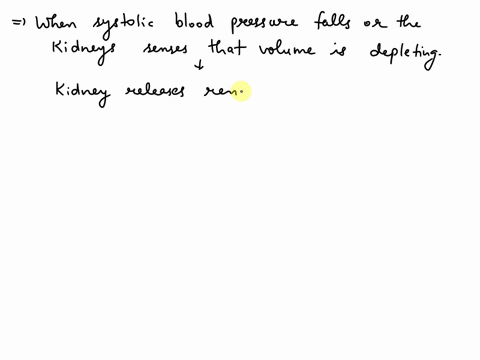 =) When systolic blood pressure falls or the
Kidneys senses that volume is depleting.
↓
Kidney releases ren.